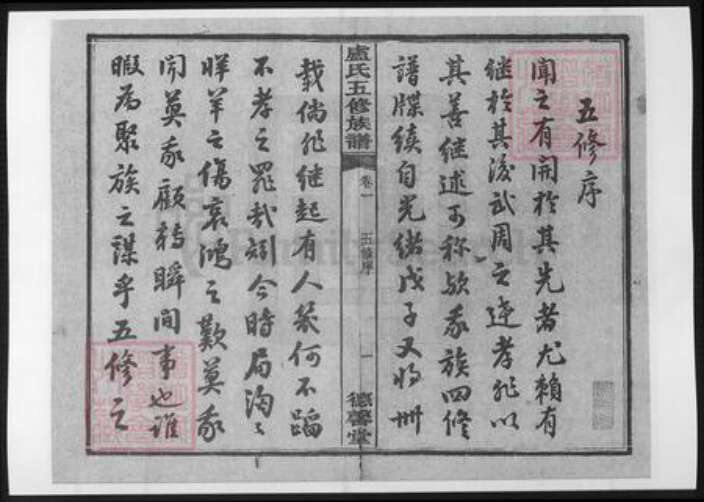 五修序
聞之有開於其先者尤賴有
继於其後武周之達孝非以
其善继述可称欤我族四修
譜牒续自光绪戊子又将卅
盧氏五修族譜
卷一
五修序
一
德馨堂
載倘非继起有人幾何不蹈
不孝之罪哉矧今時局淘々
牂羊之傷哀鴻之歎莫我
聞莫我顧轉瞬間事也誰
暇为聚族之謀乎五修之